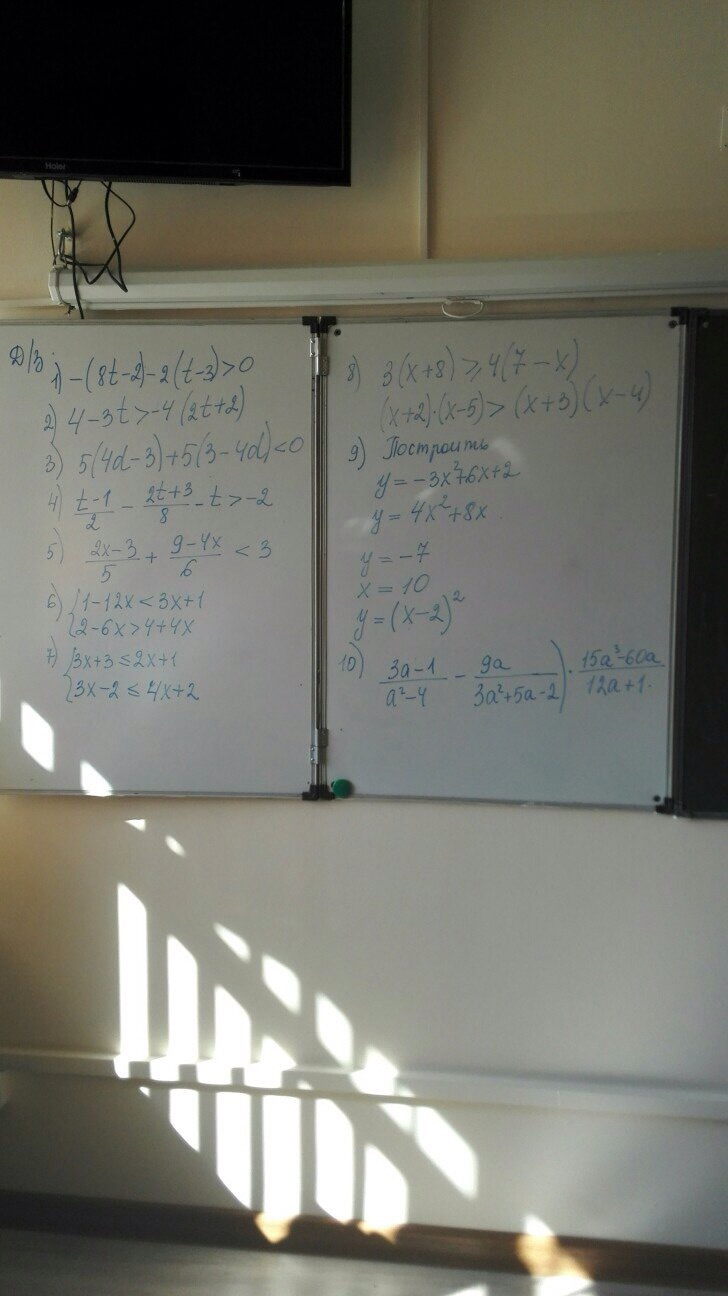 Haier
Д/з
1) -(8t-2)-2(t-3)>0
2) 4-3t>-4(2t+2)
3) 5(4d-3)+5(3-4d)<0
4) t-1/2 - 2t+3/8 - t > -2
5) 2x-3/5 + 9-4x/6 < 3
6) {1-12x<3x+1
2-6x>4+4x
7) {3x+3≤2x+1
3x-2≤4x+2
8) 3(x+8)≥4(7-x)
(x+2)·(x-5)>(x+3)(x-4)
9) Построить
y=-3x²+6x+2
y=4x²+8x
y=-7
x=10
y=(x-2)²
10) 3a-1/a²-4 - 9a/3a²+5a-2)·15a³-60a/12a+1.